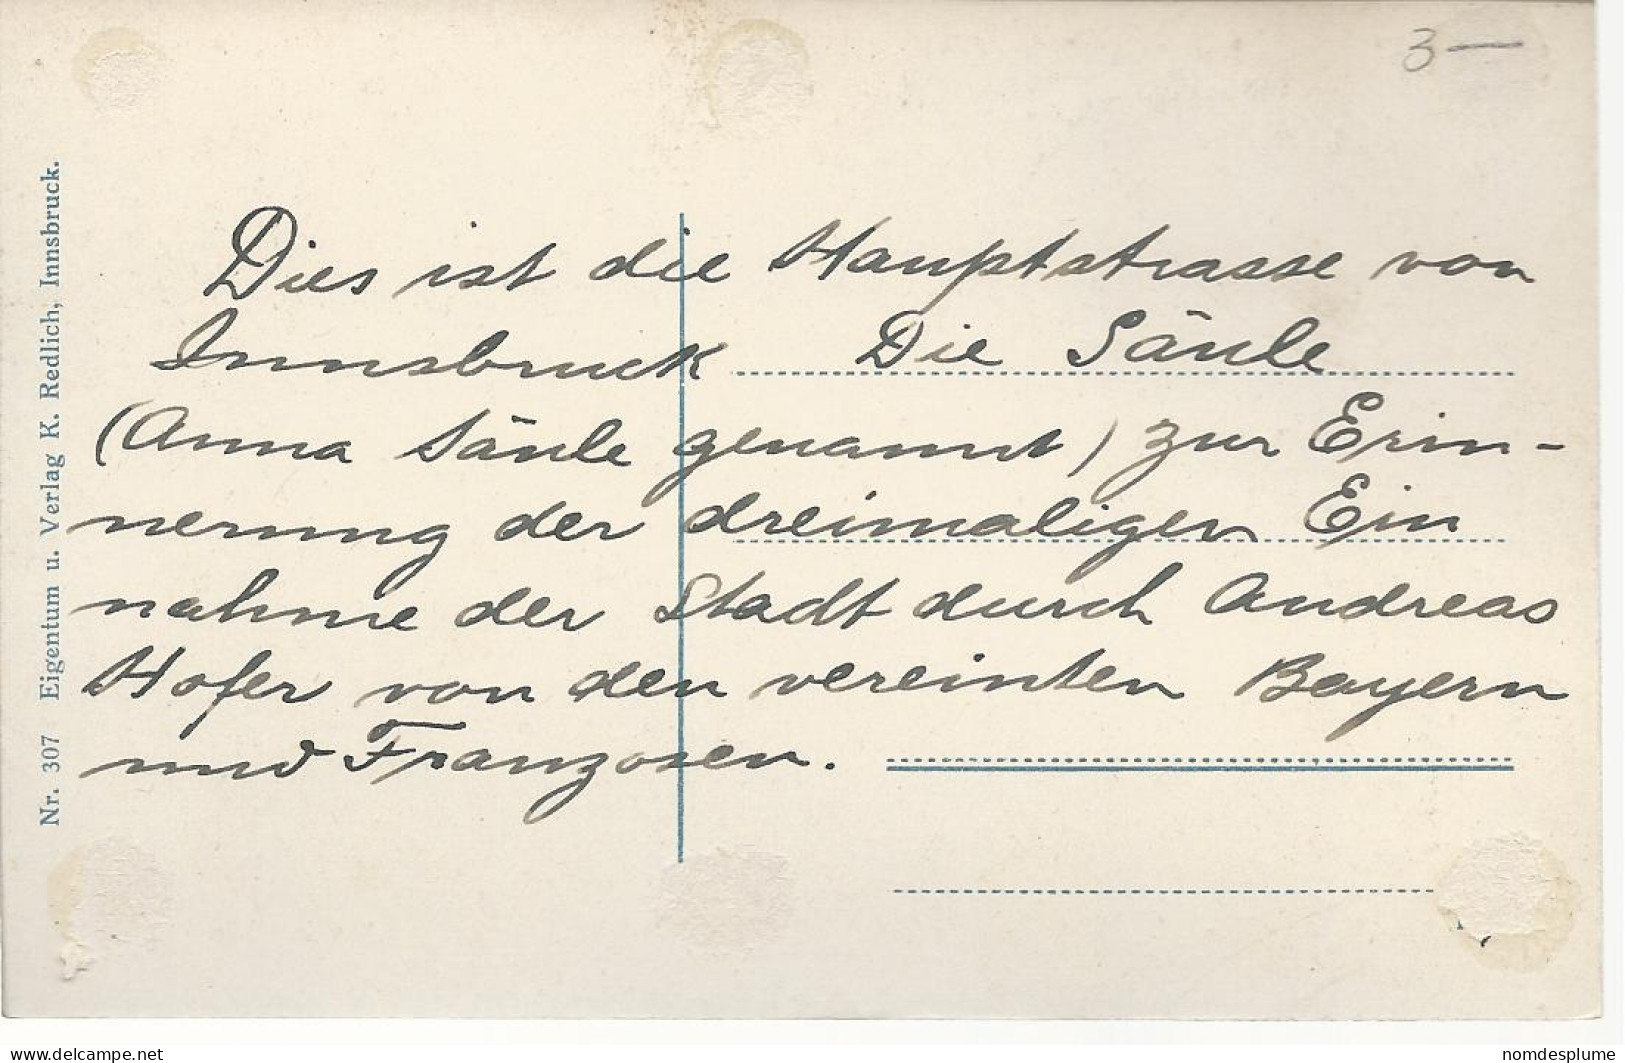 3—
Nr. 307 Eigentum u. Verlag K. Redlich, Innsbruck.
Dies ist die Hauptstrasse von
Innsbruck Die Säule
(Anna Säule genannt) zur Erin-
nerung der dreimaligen Ein
nahme der Stadt durch Andreas
Hofer von den vereinten Bayern
und Franzosen.
www.delcampe.net
nomdesplume